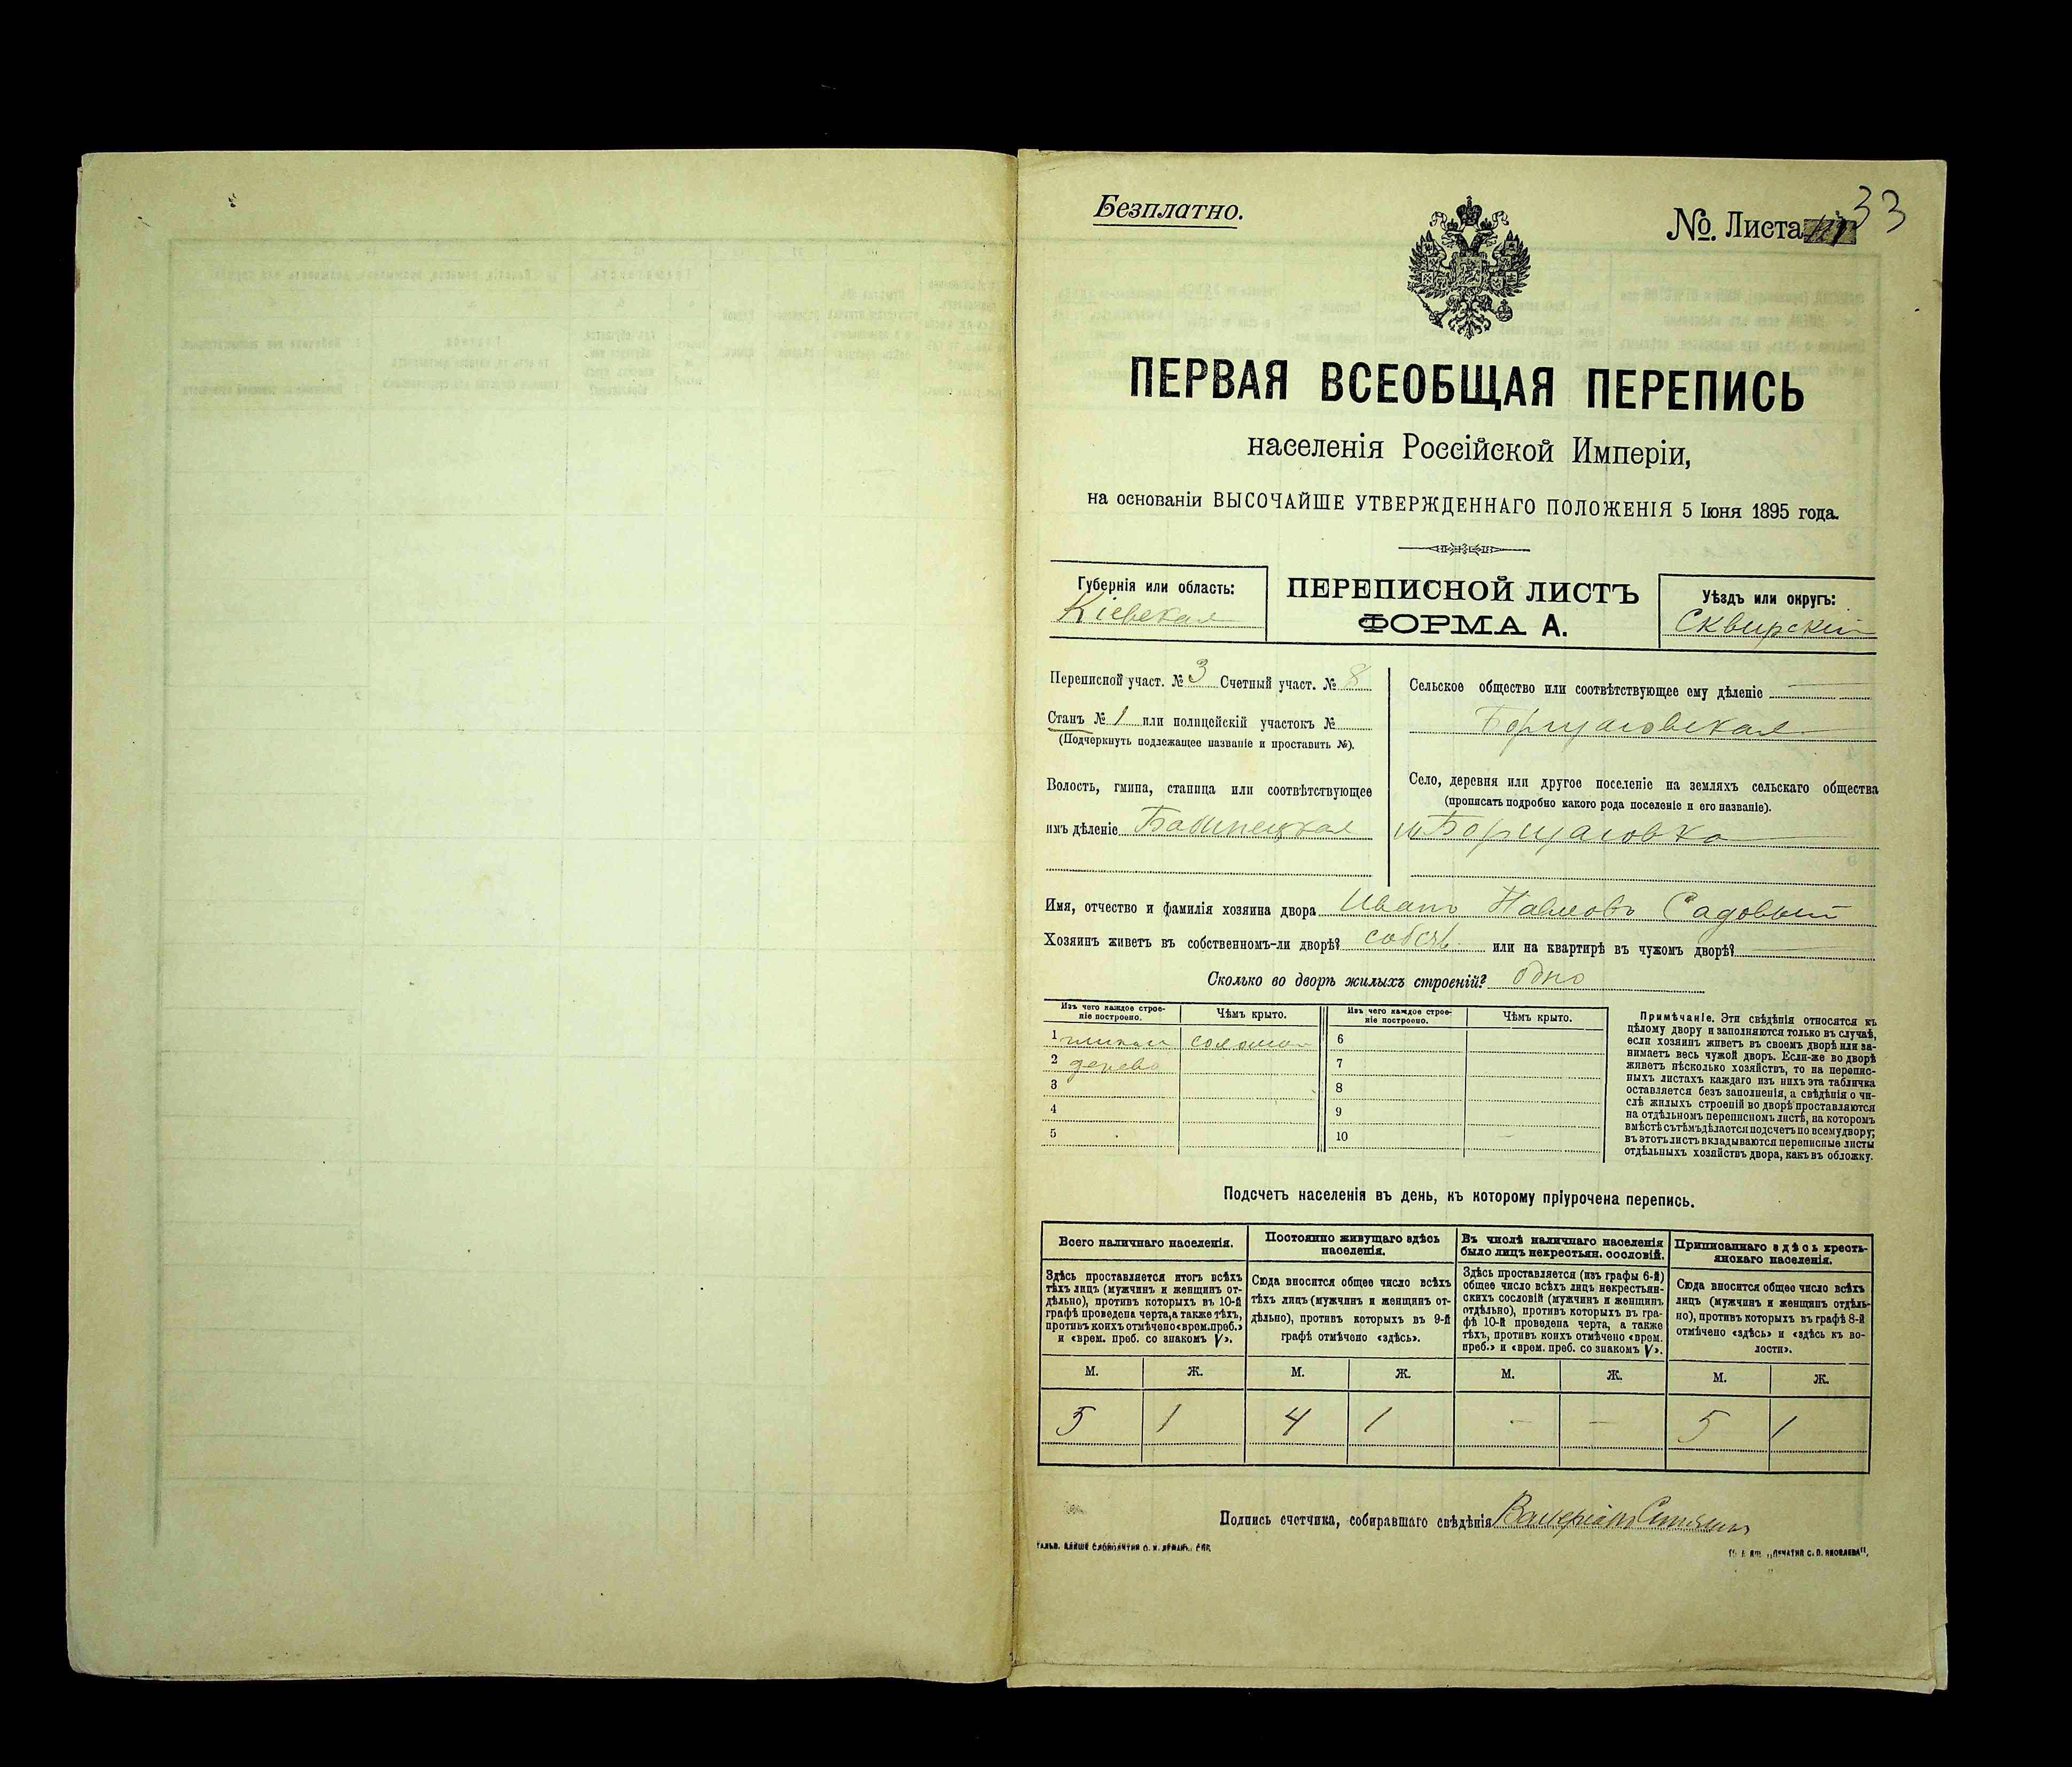 Безплатно.
№. Листа 33
ПЕРВАЯ ВСЕОБЩАЯ ПЕРЕПИСЬ
населенія Россійской Имперіи,
на основаніи ВЫСОЧАЙШЕ УТВЕРЖДЕННАГО ПОЛОЖЕНІЯ 5 Іюня 1895 года.
Губернія или область:
Кіевская
ПЕРЕПИСНОЙ ЛИСТЪ
ФОРМА А.
Уѣздъ или округъ:
Сквирскій
Переписной участ. № 3 Счетный участ. № 8
Станъ № 1 или полицейскій участокъ №
(Подчеркнуть подлежащее названіе и проставить №).
Волость, гмина, станица или соотвѣтствующее
имъ дѣленіе Бабинецкая
Сельское общество или соотвѣтствующее ему дѣленіе
Борщаговская
Село, деревня или другое поселеніе на земляхъ сельскаго общества
(прописать подробно какого рода поселеніе и его названіе).
м Борщаговка
Имя, отчество и фамилія хозяина двора Иванъ Павловъ Садовый
Хозяинъ живетъ въ собственномъ-ли дворѣ? собств. или на квартирѣ въ чужомъ дворѣ?
Сколько во дворѣ жилыхъ строеній? одно
Изъ чего каждое строе-
ніе построено.
Чѣмъ крыто.
1 солома
2 дерево
3
4
5
Изъ чего каждое строе-
ніе построено.
Чѣмъ крыто.
6
7
8
9
10
Примѣчаніе. Эти свѣдѣнія относятся къ
цѣлому двору и заполняются только въ случаѣ,
если хозяинъ живетъ въ своемъ дворѣ или за-
нимаетъ весь чужой дворъ. Если-же во дворѣ
живетъ нѣсколько хозяйствъ, то на перепис-
ныхъ листахъ каждаго изъ нихъ эта табличка
оставляется безъ заполненія, а свѣдѣнія о чи-
слѣ жилыхъ строеній во дворѣ проставляются
на отдѣльномъ переписномъ листѣ, на которомъ
вмѣстѣ съ тѣмъ дѣлается подсчетъ по всему двору;
въ этотъ листъ вкладываются переписные листы
отдѣльныхъ хозяйствъ двора, какъ въ обложку.
Подсчетъ населенія въ день, къ которому пріурочена перепись.
Всего наличнаго населенія.
Здѣсь проставляется итогъ всѣхъ
тѣхъ лицъ (мужчинъ и женщинъ от-
дѣльно), противъ которыхъ въ 10-й
графѣ проведена черта, а также тѣхъ,
противъ коихъ отмѣчено «врем. преб.»
и «врем. преб. со знакомъ V».
Постоянно живущаго здѣсь
населенія.
Сюда вносится общее число всѣхъ
тѣхъ лицъ (мужчинъ и женщинъ от-
дѣльно), противъ которыхъ въ 9-й
графѣ отмѣчено «здѣсь».
Въ числѣ наличнаго населенія
было лицъ некрестьян. сословій.
Здѣсь проставляется (изъ графы 6-й)
общее число всѣхъ лицъ некрестьян-
скихъ сословій (мужчинъ и женщинъ
отдѣльно), противъ которыхъ въ гра-
фѣ 10-й проведена черта, а также
тѣхъ, противъ коихъ отмѣчено «врем.
преб.» и «врем. преб. со знакомъ V».
Приписаннаго здѣсь кресть-
янскаго населенія.
Сюда вносится общее число всѣхъ
лицъ (мужчинъ и женщинъ отдѣль-
но), противъ которыхъ въ графѣ 8-й
отмѣчено «здѣсь» и «здѣсь къ во-
лости».
М. Ж. М. Ж. М. Ж. М. Ж.
5 1 4 1 - - 5 1
Подпись счетчика, собиравшаго свѣдѣнія Валеріанъ